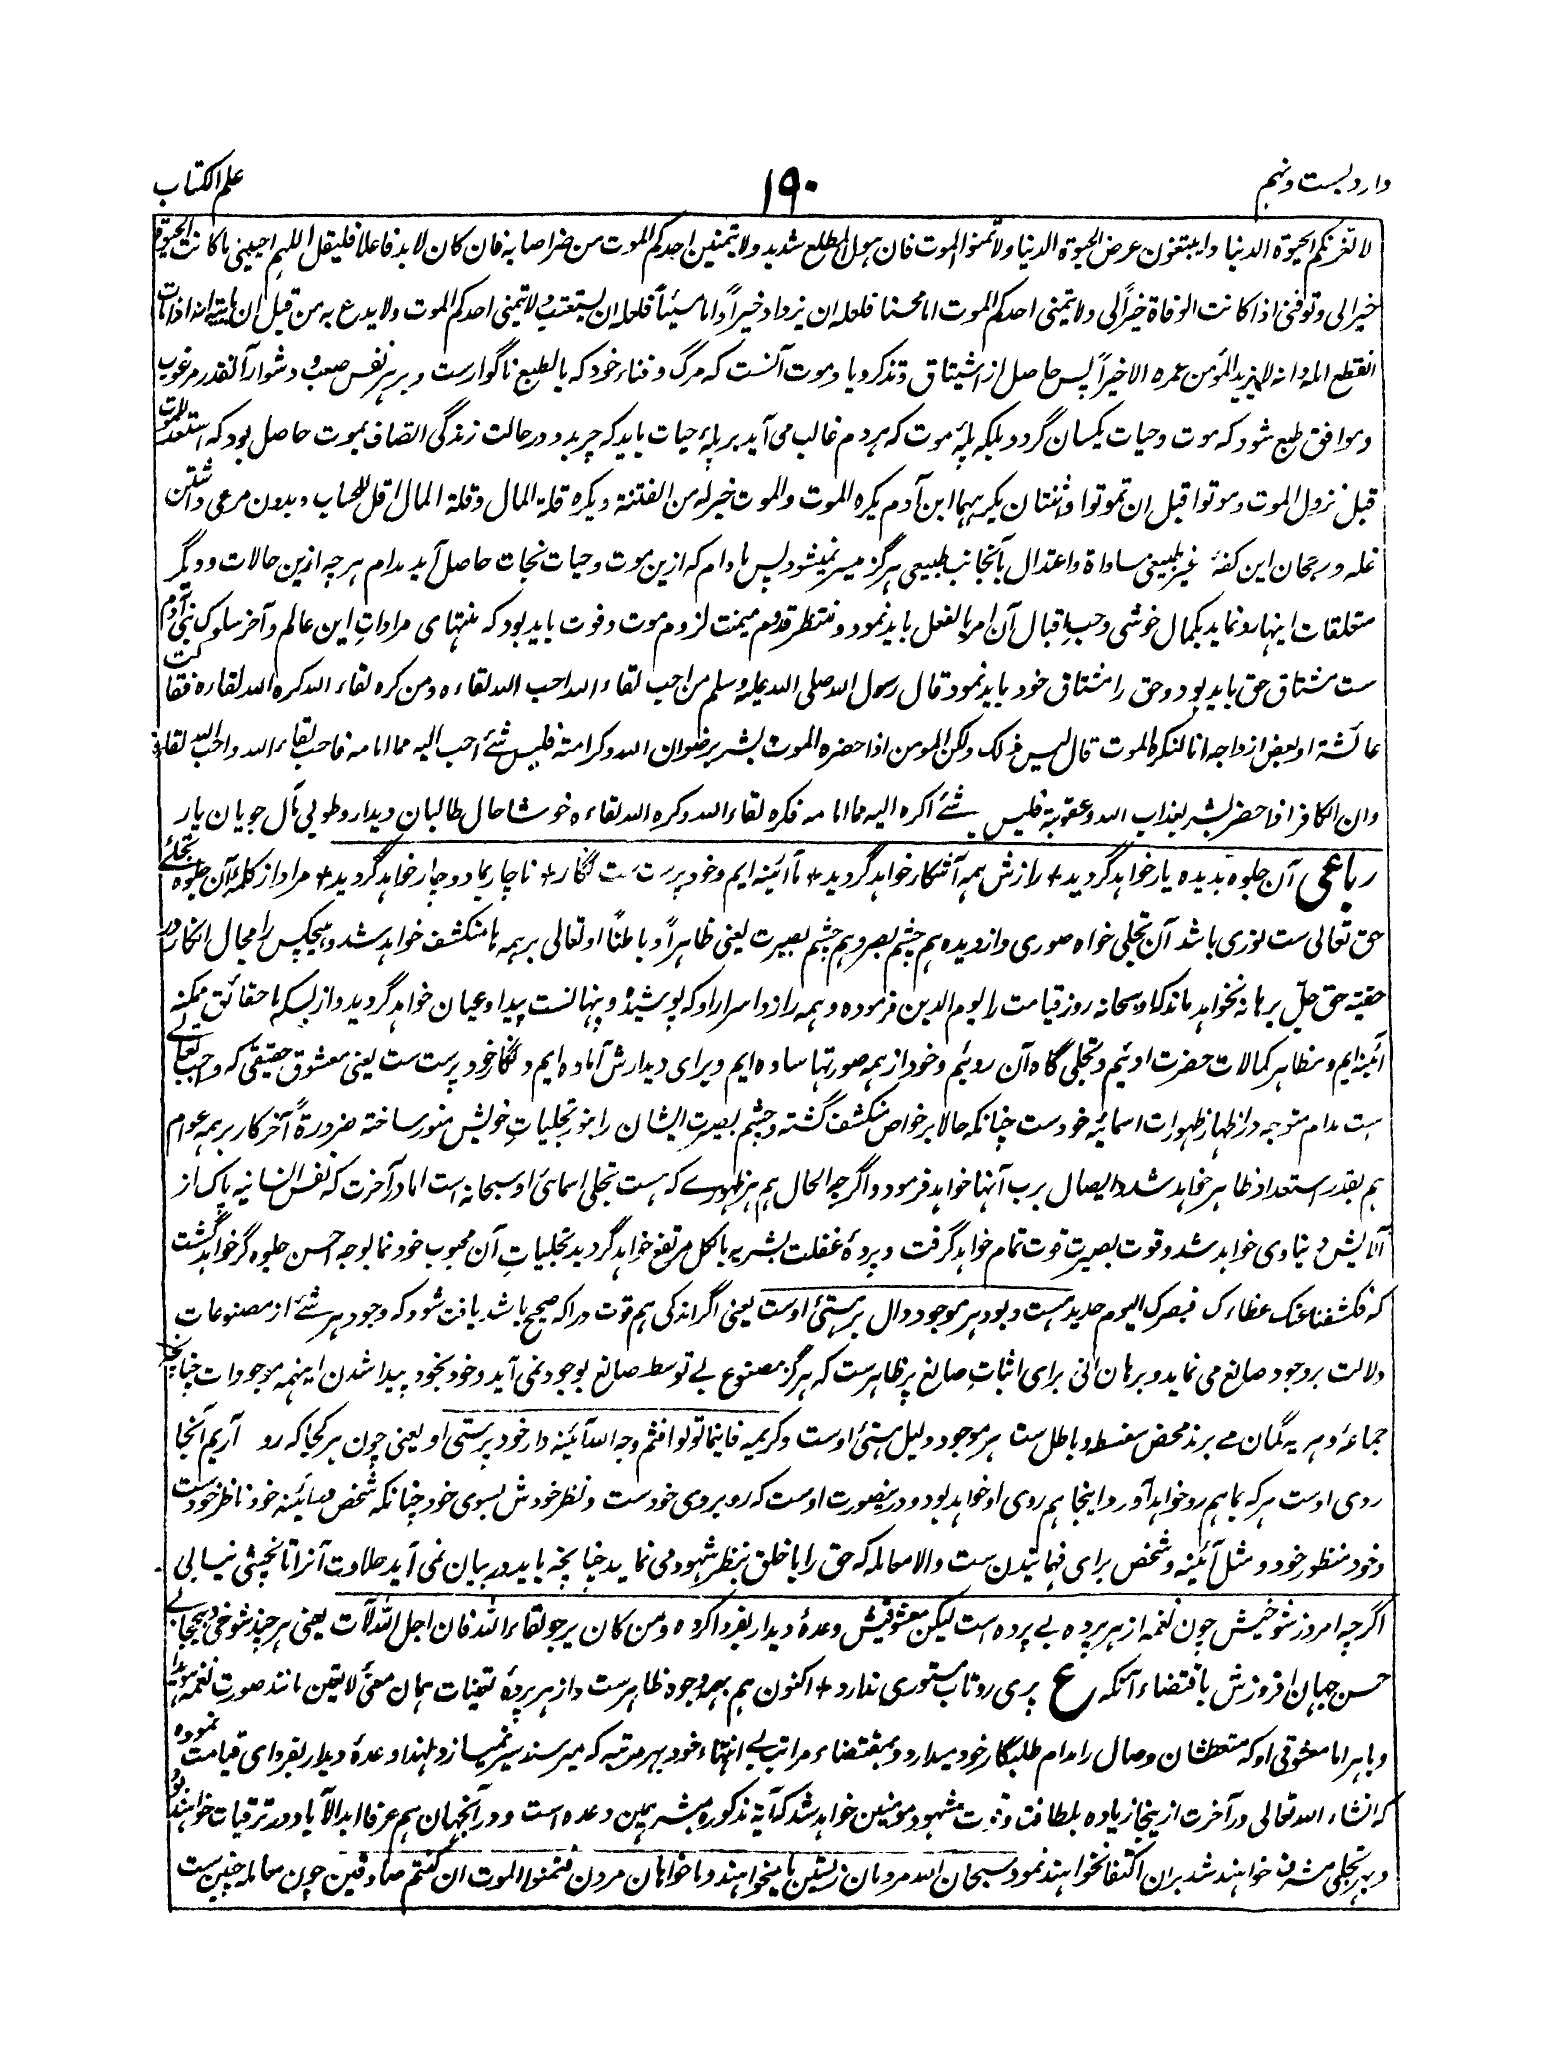 وارد بست و نهم ۱۹۰ علم الکتاب
لا تغرنکم الحیوة الدنیا وابتغون عرض الحیوة الدنیا ولا تمنوا الموت فان ہول المطلع شدید ولا یتمنین احدکم الموت من ضر اصابه فان کان لابد فاعلا فلیقل اللہم احیینی ما کانت الحیوة
خیرا لی و توفنی اذا کانت الوفاة خیراً لی ولا یتمنی احدکم الموت اما محسنا فلعله ان یزداد خیراً واما مسیئاً فلعله ان یستعتب ولا یتمنی احدکم الموت ولا یدع به من قبل ان یاتیه انه اذا مات
انقطع امله وانه لا یزید المؤمن عمره الا خیراً پس حاصل از اشتیاق و تذکر و یاد موت آنست که مرگ و فناء خود که بالطبع ناگوارست و بر ہر نفس صعب و دشوار آنقدر مرغوب
و موافق طبع شود که موت و حیات یکسان گردد بلکه پلۀ موت که ہردم غالب می آید بر پلۀ حیات باید که چربد و در حالت زندگی اتصاف بموت حاصل بود که استعد للموت
قبل نزول الموت و موتوا قبل ان تموتوا واثنتان یکرہہما ابن آدم یکره الموت والموت خیر له من الفتنة ویکره قلة المال وقلة المال اقل للحساب و بدون مرعی داشتن
غله و رجحان این کفۀ غیر طبیعی مساواة و اعتدال بآنجانب طبیعی ہرگز میسر نمیشود پس مادام که ازین موت و حیات نجات حاصل آید مدام ہرچه ازین حالات و دیگر
متعلقات اینہا رو نماید بکمال خوشی و حب اقبال آن امر بالفعل باید نمود و منتظر قدوم میمنت لزوم موت و فوت باید بود که منتہای مرادات این عالم و آخر سلوک بنی آدم
ست مشتاق حق باید بود و حق را مشتاق خود باید نمود قال رسول الله صلی الله علیه وسلم من احب لقاء الله احب الله لقاءه ومن کره لقاء الله کره الله لقاءه فقالت
عائشة او بعض ازواجه انا لنکره الموت قال لیس ذلک ولکن المومن اذا حضره الموت بشر برضوان الله وکرامته فلیس شئ احب الیه مما امامه فاحب لقاء الله واحب الله لقاءه
وان الکافر اذا حضر بشر بعذاب الله وعقوبة فلیس شئ اکره الیه مما امامه فکره لقاء الله وکره الله لقاءه خوشا حال طالبان دیدار و طوبی مآل جویان یار
رباعی آن جلوه بدیده یار خواہد گردید + رازش ہمه آشکار خواہد گردید + ما آئینه ایم و خود پرست ست نگار + ناچار بما دوچار خواہد گردید + مراد از کلمۀ آن جلوه تجلئ
حق تعالی ست نوری باشد آن تجلی خواه صوری و از دیده ہم چشم بصر و ہم چشم بصیرت یعنی ظاہراً و باطناً او تعالی بر ہمه ما منکشف خواہد شد و ہیچکس را مجال انکار در
حقیة حق جل برہانه نخواہد ماند که او سبحانه روز قیامت را یوم الدین فرموده و ہمه راز و اسرار او که پوشیده و پنہانست پیدا و عیان خواہد گردید و از بسکه ما حقائق ممکنه
آئینه ایم و مظاہر کمالات حضرت اوئیم و تجلی گاه آن روئیم و خود از ہمه صورتہا ساده ایم و برای دیدارش آماده ایم و نگار خود پرست ست یعنی معشوق حقیقی که واجب تعالی
ست مدام متوجه در اظہار ظہورات اسمائیه خودست چنانکه حالا بر خواص منکشف گشته و چشم بصیرت ایشان را بنور تجلیات خویش منور ساخته ضرورةً آخر کار بر ہمه عوام
ہم بقدر استعداد ظاہر خواہد شد و ایصال برب آنہا خواہد فرمود و اگرچه الحال ہم ہر ظہورے که ہست تجلی اسمائ او سبحانه است اما در آخرت که نفس انسانیه پاک از
آلایش دنیاوی خواہد شد و قوت بصیرت قوت تمام خواہد گرفت و پردۀ غفلت بشریه بالکل مرتفع خواہد گردید تجلیات آن محبوب خود نما بوجه احسن جلوه گر خواہد گشت
که فکشفنا عنک غطاءک فبصرک الیوم حدید ہست و بود ہر موجود دال بر ہستئ اوست یعنی اگر اندکی ہم قوت دراکه صحیح باشد یافت شود که وجود ہر شئ از مصنوعات
دلالت بر وجود صانع می نماید و برہان انی برای اثبات صانع پر ظاہرست که ہرگز مصنوع بے توسط صانع بوجود نمی آید و خود بخود پیدا شدن اینہمه موجودات چنانچه
جماعۀ دہریه گمان مے برند محض سفسطه و باطل ست ہر موجود دلیل ہستئ اوست و کریمه فاینما تولوا فثم وجه الله آئینه دار خود پرستی او یعنی چون ہر کجا که رو آریم آنجا
روی اوست ہر که بما ہم رو خواہد آورد اینجا ہم روی او خواہد بود و درینصورت اوست که روبروی خودست و نظر خودش بسوی خود چنانکه شخص در آئینه خود ناظر خودست
و خود منظور خود و مثل آئینه و شخص برای فہمانیدن ست والا معامله که حق را با خلق بنظر شہود می نماید چنانچه باید در بیان نمی آید حلاوت آنرا تا نچشی نیابی
اگرچه امروز شوخیش چون نغمه از ہر پرده بے پرده است لیکن معشوقیش وعدۀ دیدار بفردا کرده و من کان یرجو لقاء الله فان اجل الله لآت یعنی ہر چند شوخی و بیحجابے
حسن جہان افروزش باقتضاء آنکه ع پری رو تاب مستوری ندارد + اکنون ہم بہر وجوه ظاہرست و از ہر پردۀ تعینات ہمان معنئ لا یتعین مانند صورت نغمه ہویدا
و باہر اما معشوقی او که متعطشان وصال را مدام طلبگار خود میدارد و بمقتضاء مراتب بے انتہاء خود بہر مرتبه که میرسند سیر نمیسازد لہذا وعدۀ دیدار بفردای قیامت نموده
که انشاء الله تعالی در آخرت ازینجا زیاده بلطافت و قوت مشہود مومنین خواہد شد که آیۀ مذکوره مبشر ہمین وعده است و در آنجہان ہم عرفا ابدالآباد در ترقیات خواہند بود
و بہر تجلی مشرف خواہند شد بران اکتفا نخواہند نمود سبحان الله مردمان زیستن را میخواہند و ما خواہان مردن فتمنوا الموت ان کنتم صادقین چون معامله چنین ست